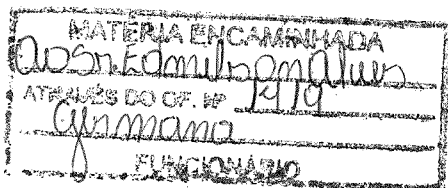 MATÉRIA ENCAMINHADA
ao Sr. Edmilson Alves
ATRAVÉS DO OF. Nº 1419
Germano
FUNCIONÁRIO